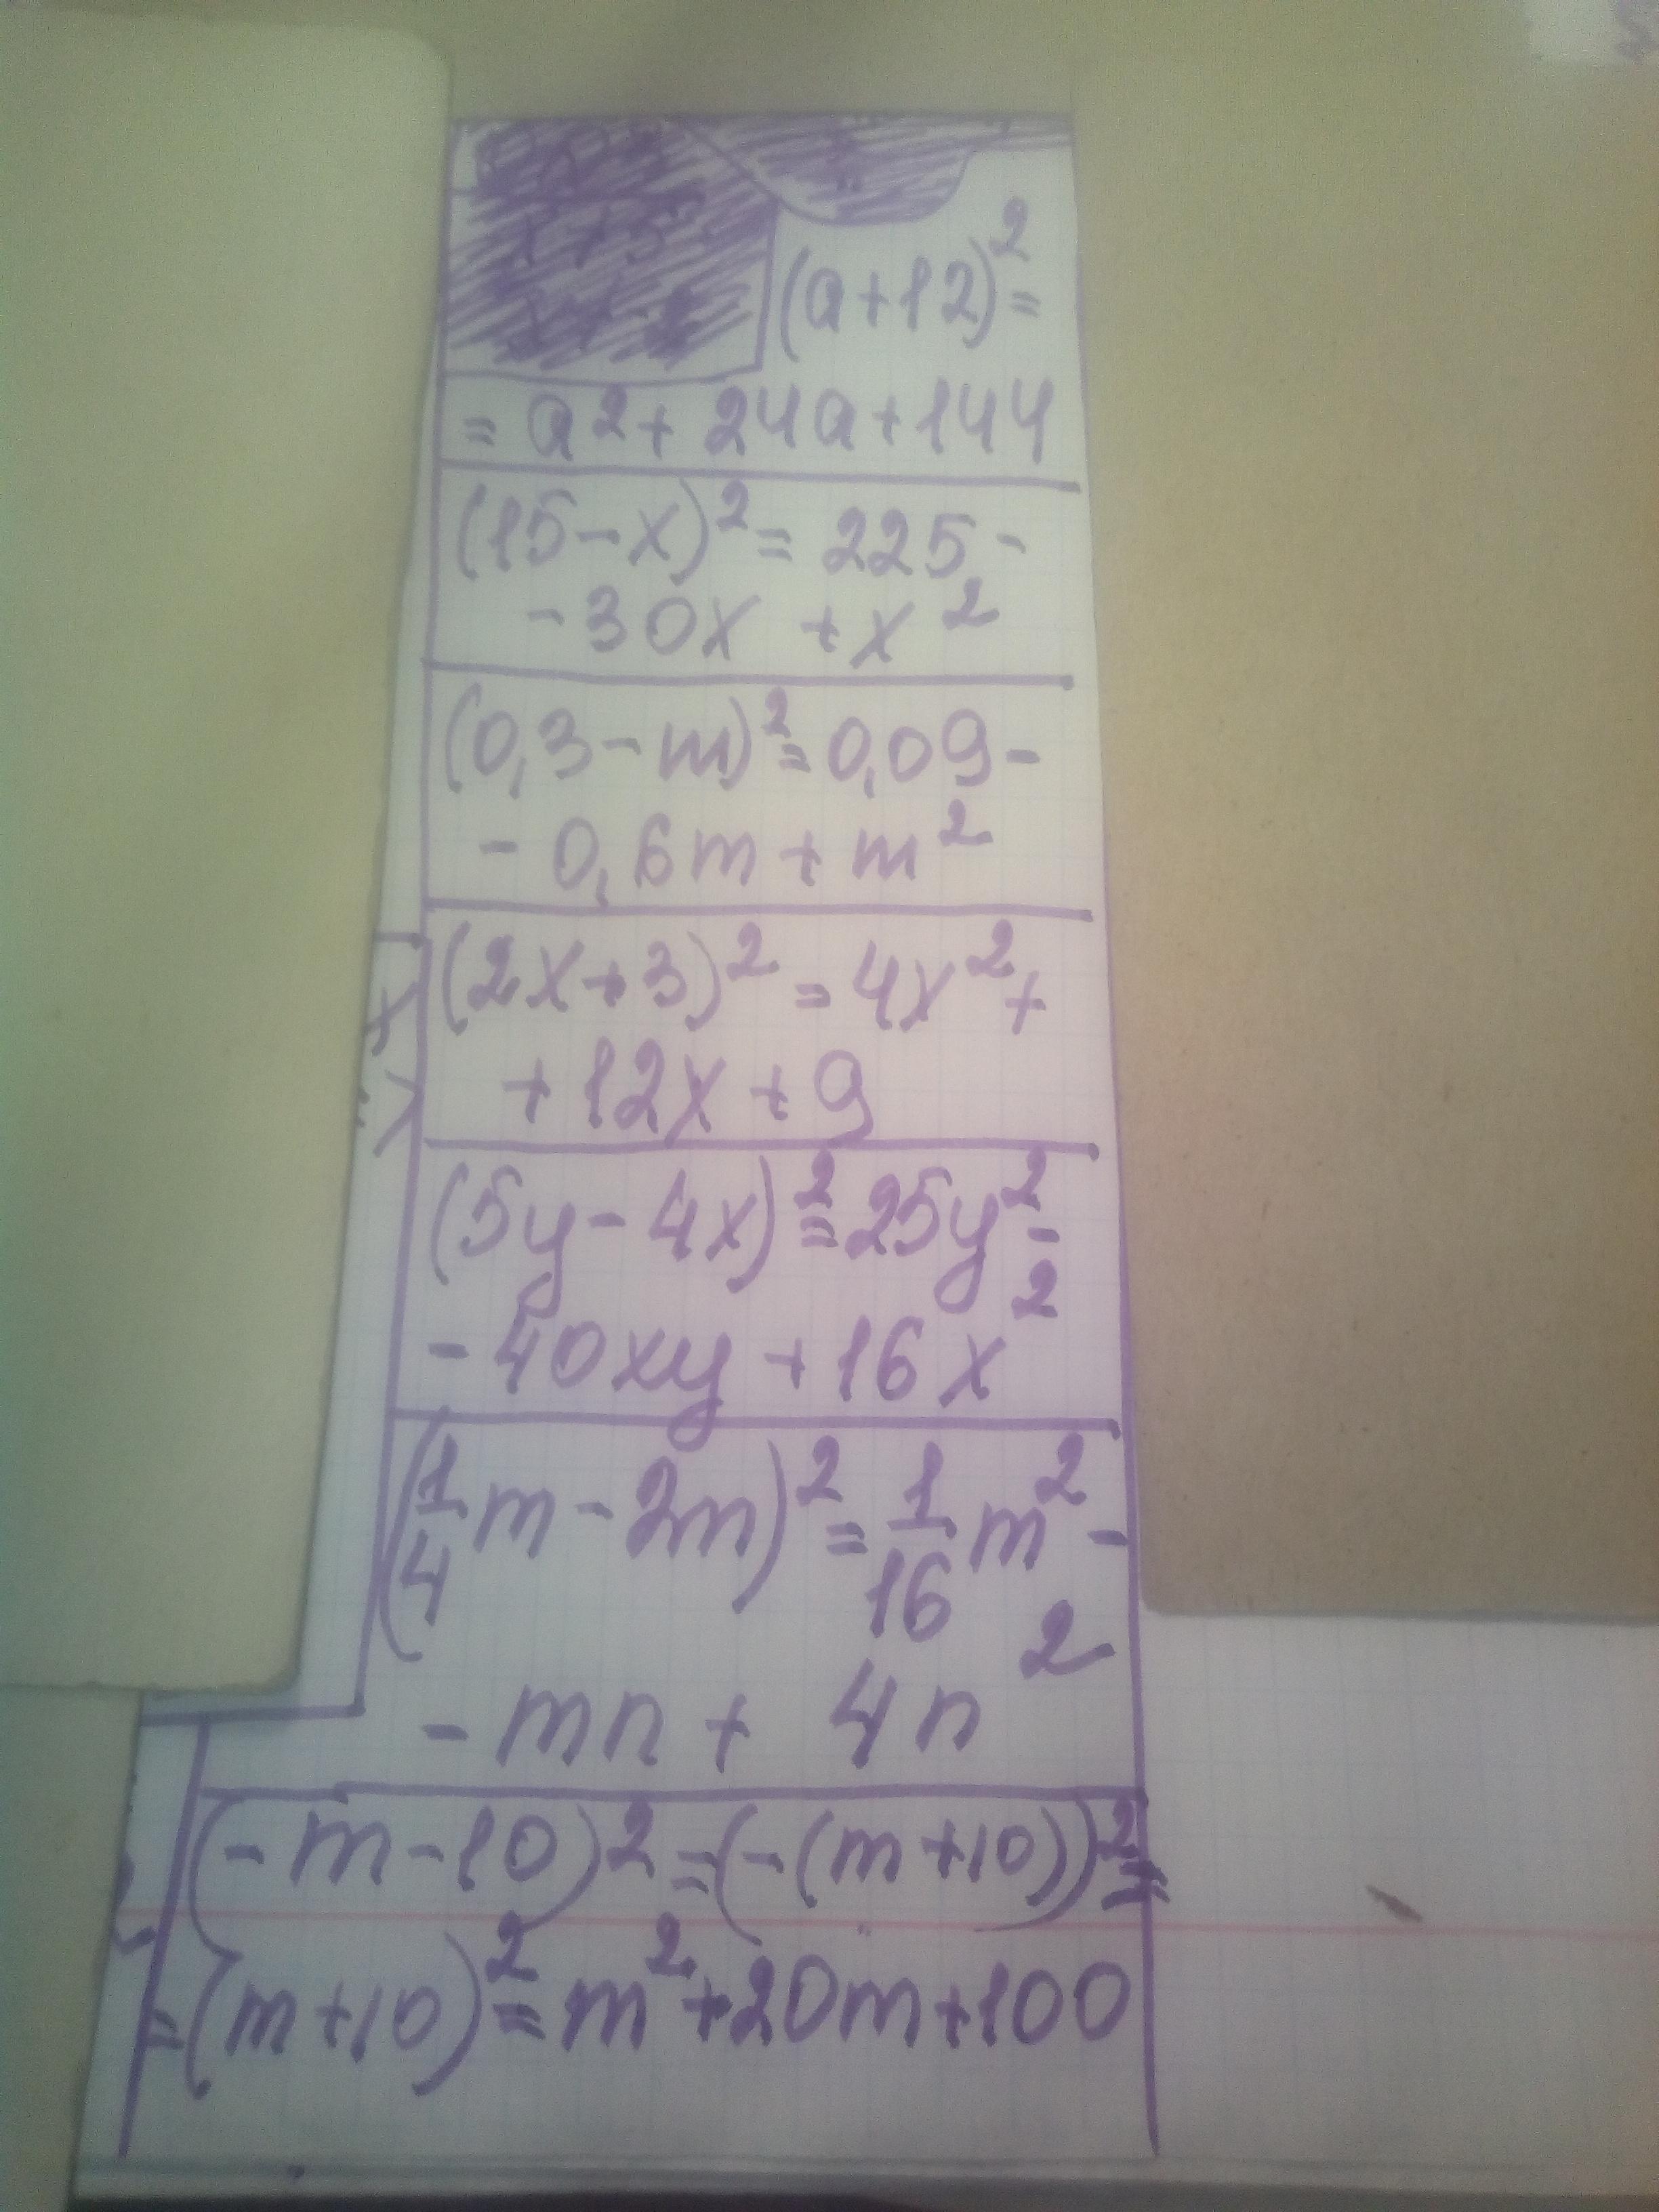 (a+12)²=
= a²+ 24a+144
(15-x)²= 225-
-30x +x²
(0,3-m)²=0,09-
- 0,6m+m²
(2x+3)² = 4x²+
+12x+9
(5y-4x)²=25y²-
-40xy+16x²
(1/4m-2n)²=1/16m²-
-mn+ 4n²
(-m-10)²=(-(m+10))²=
=(m+10)²=m²+20m+100